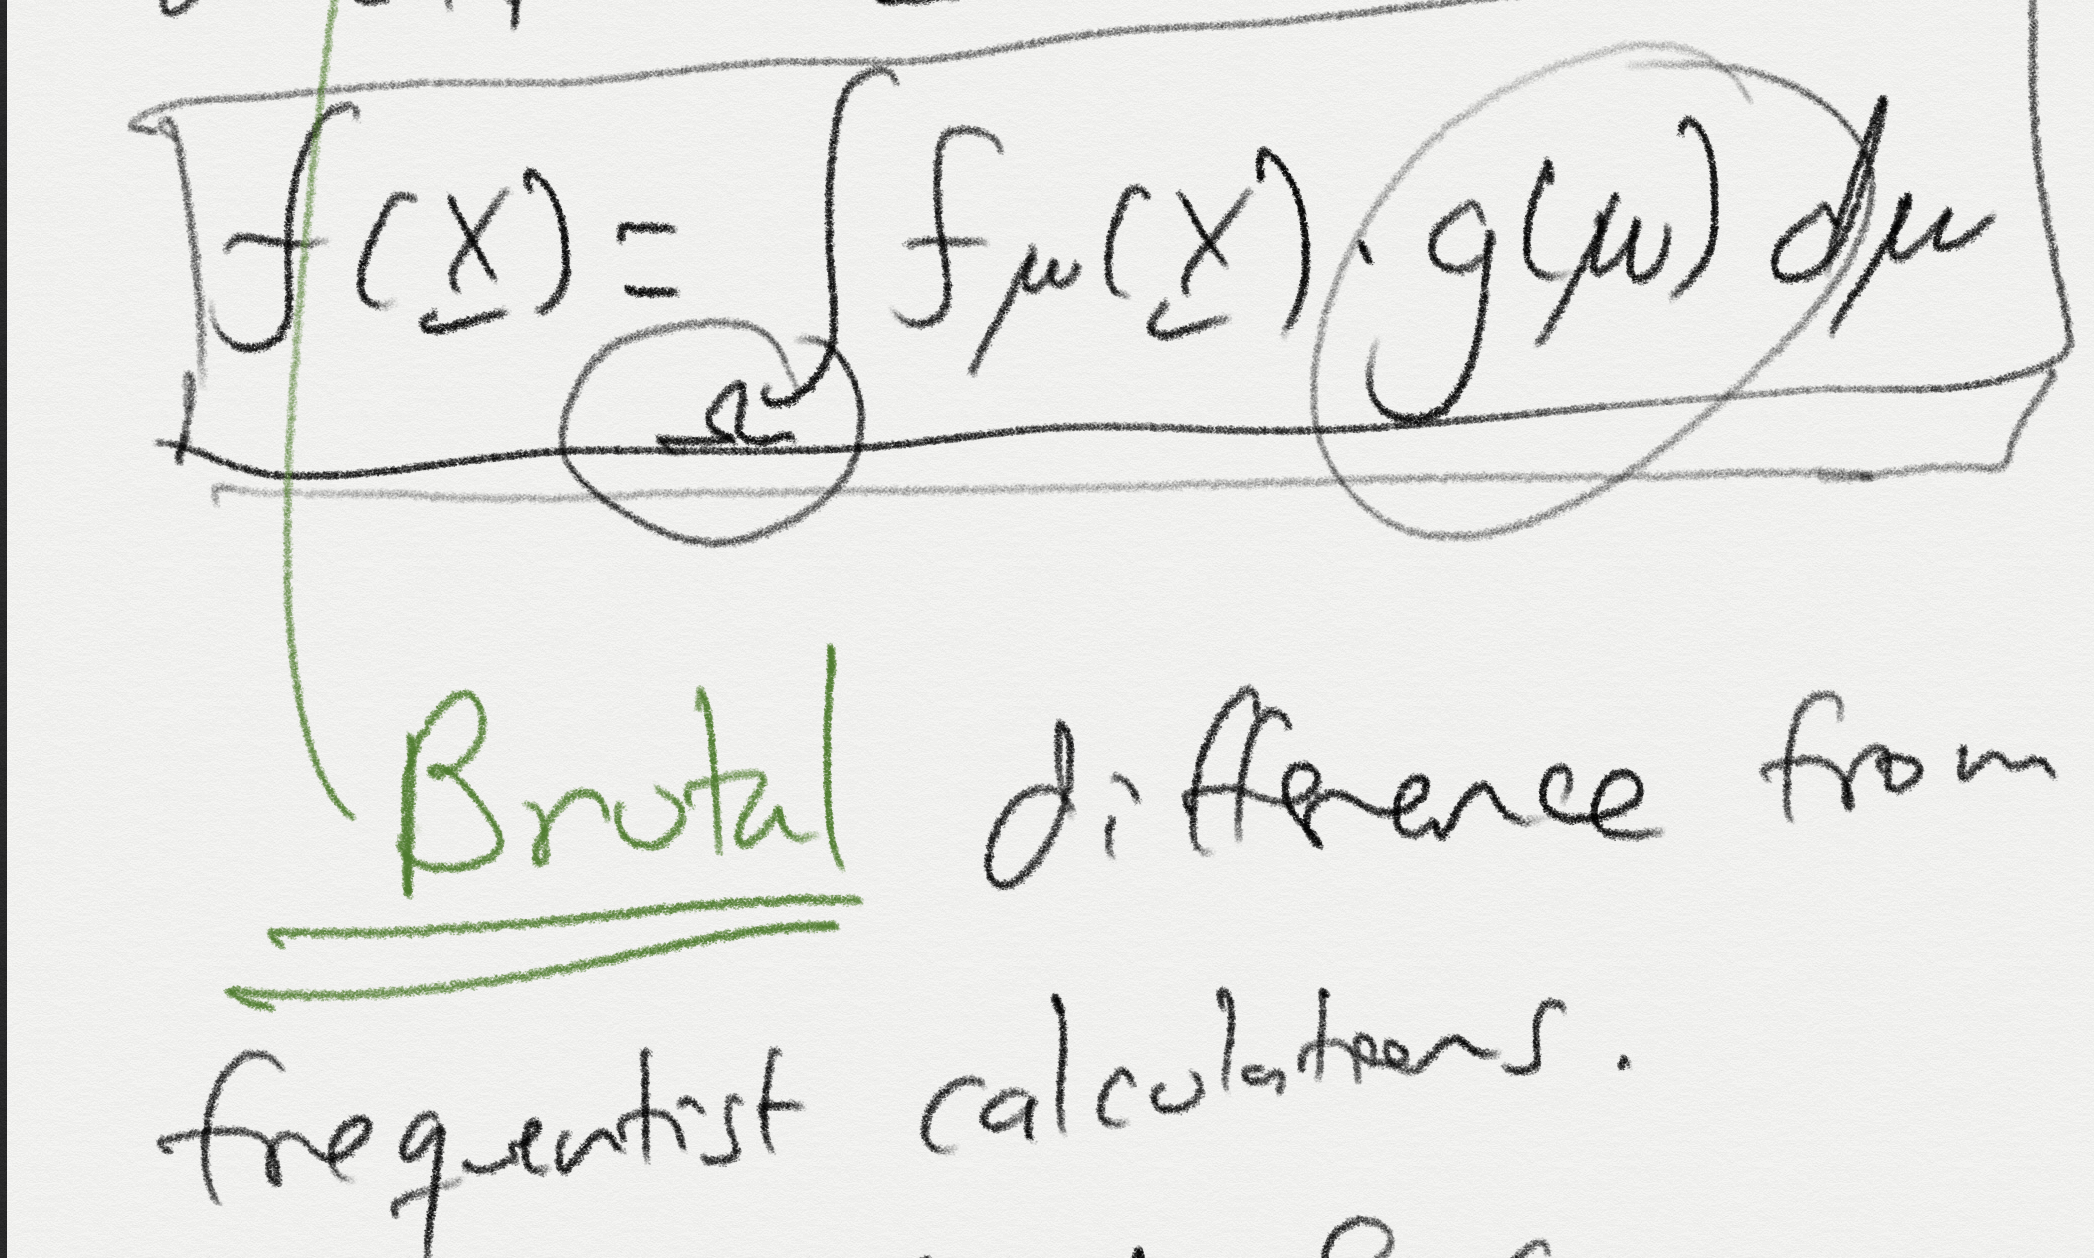 f(x) = ∫Ω fμ(x) · g(μ) dμ
Brutal difference from
frequentist calculations.